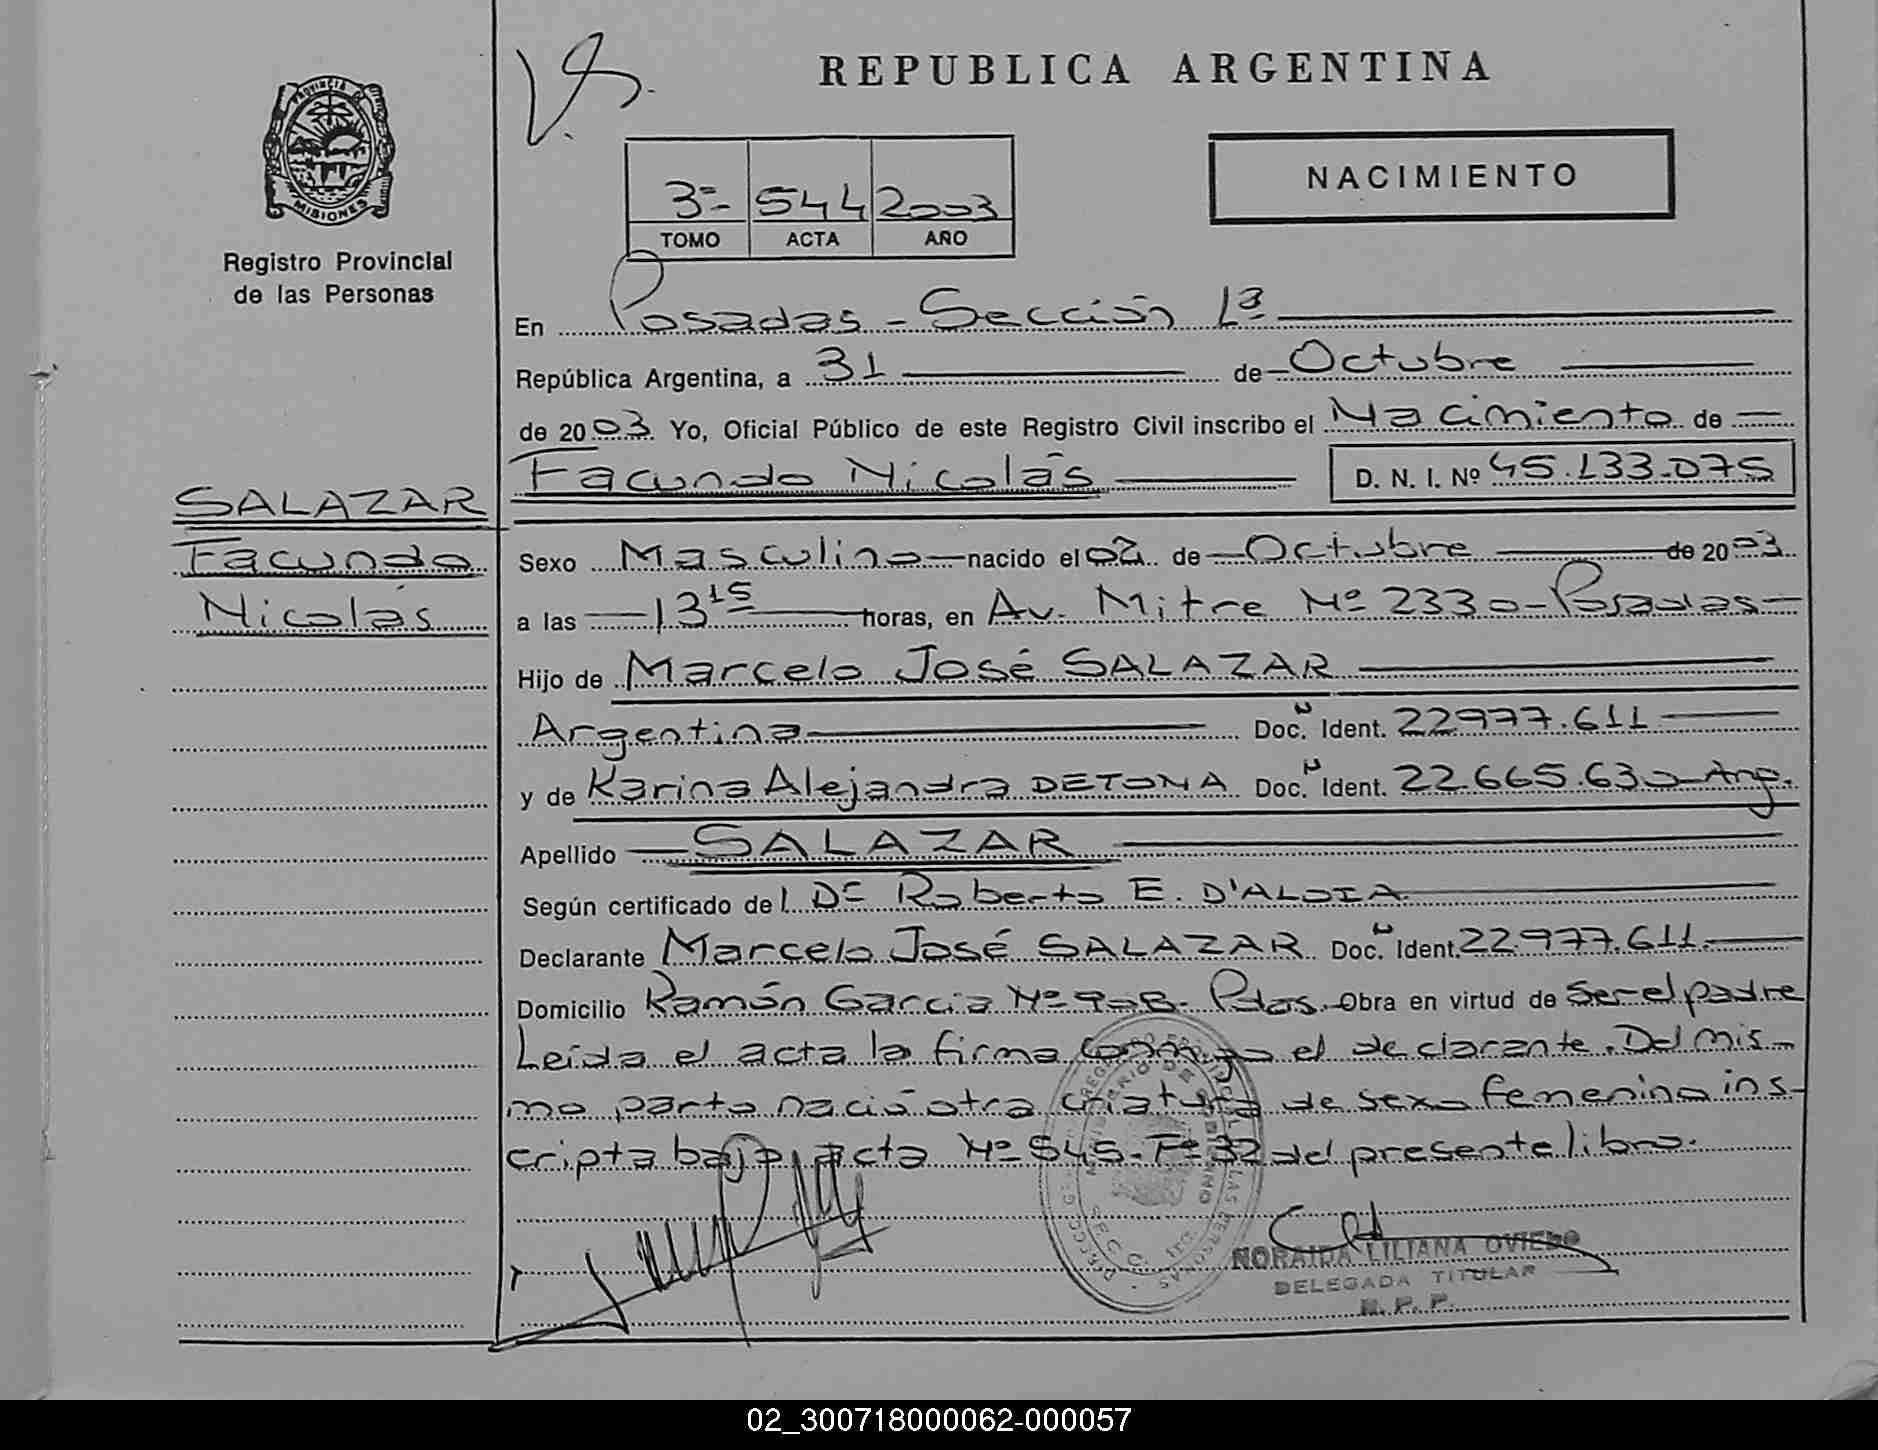 REPUBLICA ARGENTINA
PROVINCIA DE
MISIONES
Registro Provincial
de las Personas
NACIMIENTO
3º- 544 2003
TOMO ACTA AÑO
En Posadas - Sección 1ª
República Argentina, a 31 de Octubre
de 2003. Yo, Oficial Público de este Registro Civil inscribo el Nacimiento de
Facundo Nicolás D. N. I. Nº 45.133.075
SALAZAR
Facundo
Nicolás
Sexo Masculino nacido el 02 de Octubre de 2003
a las 13 15 horas, en Av. Mitre Nº 2330 - Posadas
Hijo de Marcelo José SALAZAR
Argentina Doc. Ident. 22977.611
y de Karina Alejandra DETONA Doc. Ident. 22.665.630 Arg.
Apellido SALAZAR
Según certificado del Dr Roberto E. D'ALOIA
Declarante Marcelo José SALAZAR Doc. Ident. 22.977.611.
Domicilio Ramón Garcia Nº Pdas. Obra en virtud de Ser el padre
Leída el acta la firma conmigo el declarante. Del mis-
mo parto nació otra criatura de sexo femenino ins-
cripta bajo acta Nº 545- Fº 32 del presente libro.
NORAIDA LILIANA OVIEDO
DELEGADA TITULAR
R. P. P.
02_300718000062-000057